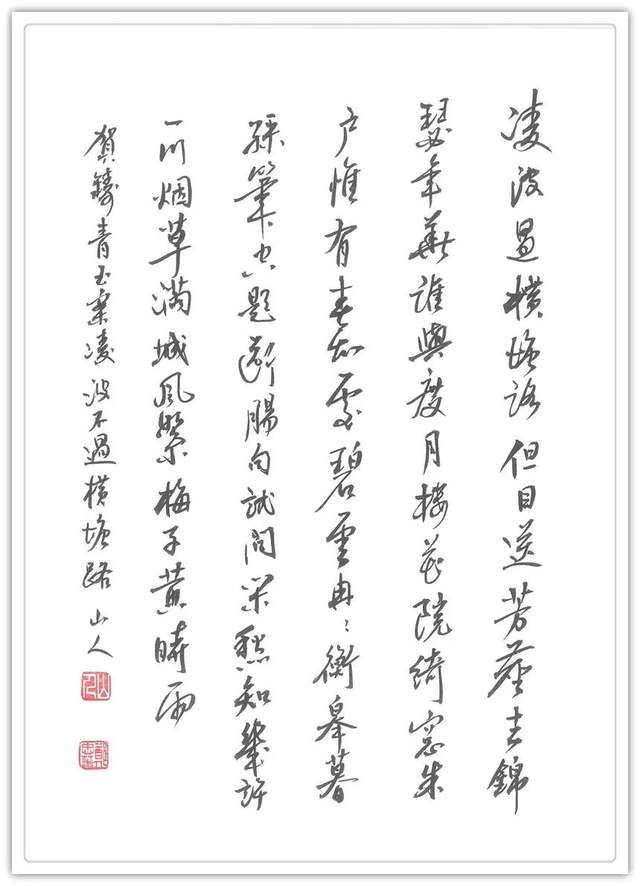 凌波過橫塘路但目送芳塵去錦
瑟年華誰與度月樓花院綺窓朱
户惟有春知處碧雲冉〻衡皋暮
綵筆空題斷腸句試問閑愁知幾許
一川烟草滿城風絮梅子黃時雨
賀鑄青玉案凌波不過橫塘路 山人
山人